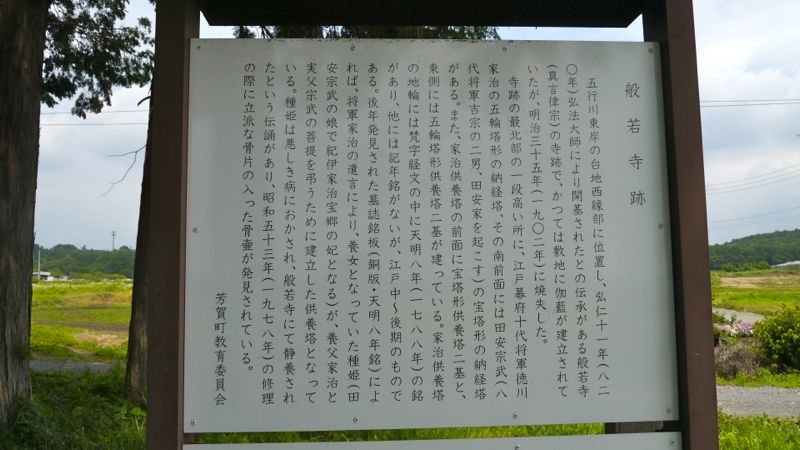 般若寺跡
五行川東岸の台地西縁部に位置し、弘仁十一年(八二
〇年)弘法大師により開基されたとの伝承がある般若寺
(真言律宗)の寺跡で、かつては敷地に伽藍が建立されて
いたが、明治三十五年(一九〇二年)に焼失した。
寺跡の最北部の一段高い所に、江戸幕府十代将軍徳川
家治の五輪塔形の納経塔、その南前面には田安宗武(八
代将軍吉宗の二男、田安家を起こす)の宝塔形の納経塔
がある。また、家治供養塔の前面に宝塔形供養塔二基と、
東側には五輪塔形供養塔二基が建っている。家治供養塔
の地輪には梵字経文の中に天明八年(一七八八年)の銘
があり、他には記年銘がないが、江戸中〜後期のもので
ある。後年発見された墓誌銘板(銅版・天明八年銘)によ
れば、将軍家治の遺言により、養女となっていた種姫(田
安宗武の娘で紀伊家治宝郷の妃となる)が、養父家治と
実父宗武の菩提を弔うために建立した供養塔となって
いる。種姫は悪しき病におかされ、般若寺にて静養され
たという伝誦があり、昭和五十三年(一九七八年)の修理
の際に立派な骨片の入った骨壷が発見されている。
芳賀町教育委員会